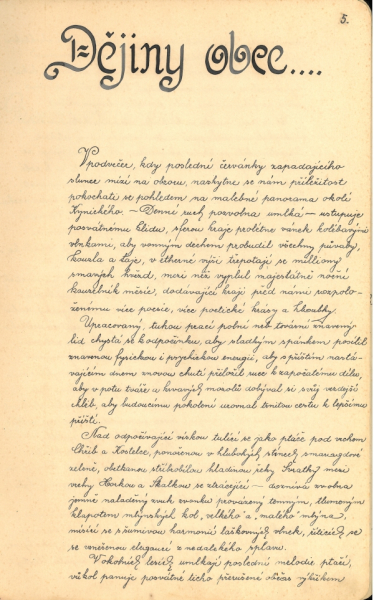 5.
Dějiny obce....
Vpodvečer, kdy poslední červánky zapadajícího
slunce mizí na obzoru, naskytne se nám příležitost
pokochati se pohledem na malebné panorama okolí
Kynického. – Denní ruch pozvolna umlká – ustupuje
posvátnému klidu, sférou hraje proletne vánek kolébavými
vlnkami, aby vonným dechem probudil všechny půvaby
kouzla a taje, v étherné výši třepotají se milliony
smavých hvězd, mezi něž vyplul majestátně noční
kouzelník měsíc, dodávající kraji před námi rozpolo-
ženému více poesie, více poetické krásy a hloubky.
Upracovaný, tuhou prací polní neb tovární znavený
lid chystá se k odpočinku, aby sladkým spánkem posílil
znavenou fysickou i psychickou energii, aby s příštím nastá-
vajícím dnem znovu chutě přiložil ruce k započatému dílu,
aby v potu tváře a krvavých mozolů dobýval si svůj vezdejší
chléb, aby budoucímu pokolení urovnal trnitou cestu k lepšímu
příští.
Nad odpočívající vískou tulící se jako ptáče pod vrchem
Chlib a Kostelce, ponořenou v hlubokých stínech smaragdové
zeleně, obetkanou stříbrolitou hladinou řeky Svratky mezi
vrchy Horkou a Skalkou se ztrácející – doznívá zvolna
jemně naladěný zvuk zvonku provázený temným, tlumeným
klapotem mlýnských kol, velkého a „malého“ mlýna,
mísící se s šumivou harmonií laškovných vlnek, řítících se
se vznešenou elegancí z nedalekého splavu.
V okolních lesích umlkají poslední melodie ptačí,
vůkol panuje posvátné ticho přerušené občas výkřikem